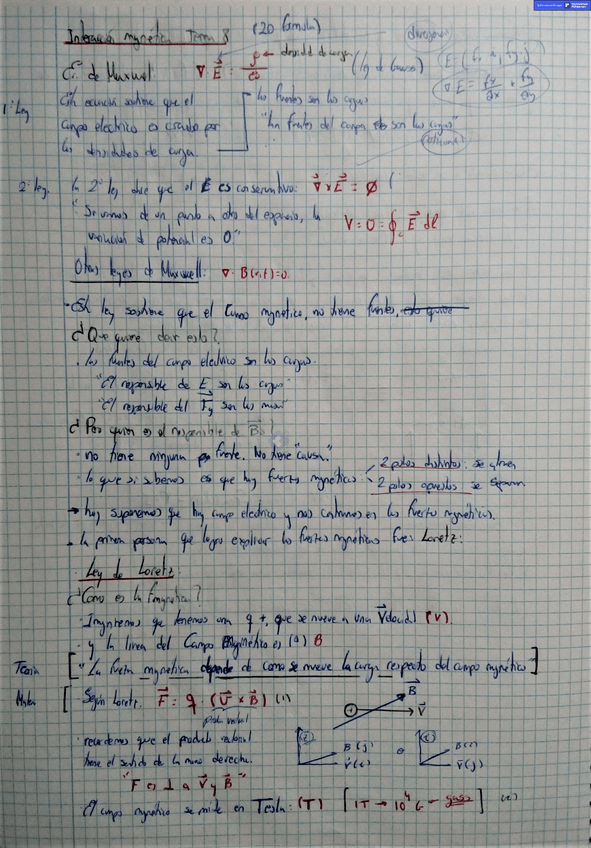 Interacción magnética Tema 8 (20 fórmula)
Ec. de Maxwell: ∇ · E = ρ/ε₀ ← densidad de carga (ley de Gauss)
divergencia
1ª Ley
Esta ecuación sostiene que el
campo electrico es creado por
las densidades de carga.
las fuentes son las cargas
"las fuentes del campo son las cargas"
2ª Ley.
la 2ª ley dice que el E es conservativo: ∇ x E = Ø
"Si vamos de un punto a otro del espacio, la
variación de potencial es 0"
V = 0 = ∮c E dl
Otras leyes de Maxwell: ∇ · B(r,t) = 0.
- Esta ley sostiene que el Campo magnético, no tiene fuentes, esto quiere
¿Que quiere decir esto?
· las fuentes del campo electrico son las cargas.
"El responsable de E son las cargas"
"El responsable del Fg son las masas"
¿Pero quien es el responsable de B?
· no tiene ninguna fuente. No tiene "causa."
· lo que si sabemos es que hay fuerzas magnéticas
2 polos distintos: se atraen
2 polos opuestos se separan
→ hoy suponemos que hay campo electrico y nos centramos en las fuerzas magnéticas.
- la primera persona que logro explicar las fuerzas magneticas fue: Loretz:
· Ley de Loretz:
¿Como es la Fmagnetica?
· Imaginemos que tenemos una q +, que se mueve a una Velocidad (v).
· y la linea del Campo Magnético es (a) B
Teoria
["La fuerza magnetica depende de como se mueve la carga respecto del campo magnético"]
Mates
Según Loretz. F = q · (V x B) (1)
B
+
V
· recordemos que el producto vectorial
tiene el sentido de la mano derecha.
B (j)
V (i)
o
B (i)
V (j)
"F es ⊥ a V y B"
El campo magnético se mide en Tesla: (T) [1T → 10⁴ G ← gauss]